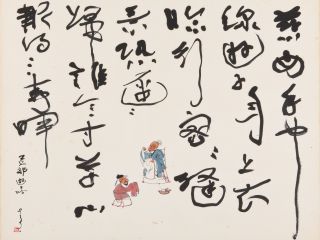 慈母手中
線遊子身上衣
臨行密〻縫
意恐遲〻
歸誰言寸草心
報得三春暉